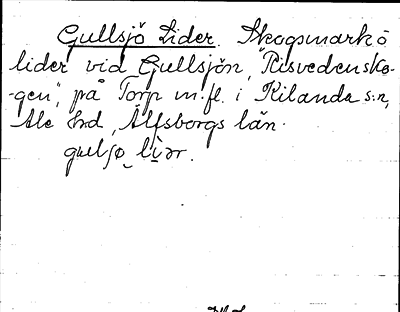 Gullsjö Lider. Skogsmark o
lider vid Gullsjön, "Risvedensko-
-gen", på Torp m.fl. i Kilanda s:n,
Ale hrd, Älfsborgs län.
gulsø_ lìər.